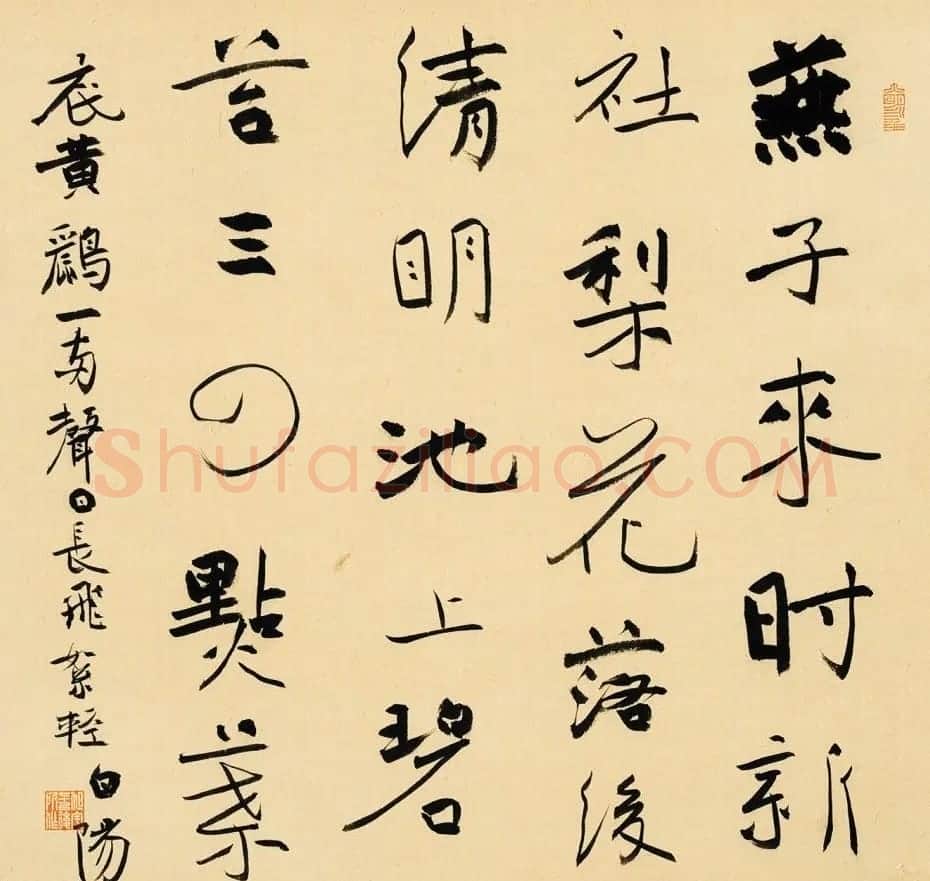 燕子來时新
社梨花落後
清明池上碧
苔三四點葉
底黃鸝一两聲日長飛絮輕白陽
Shufaziliao.COM